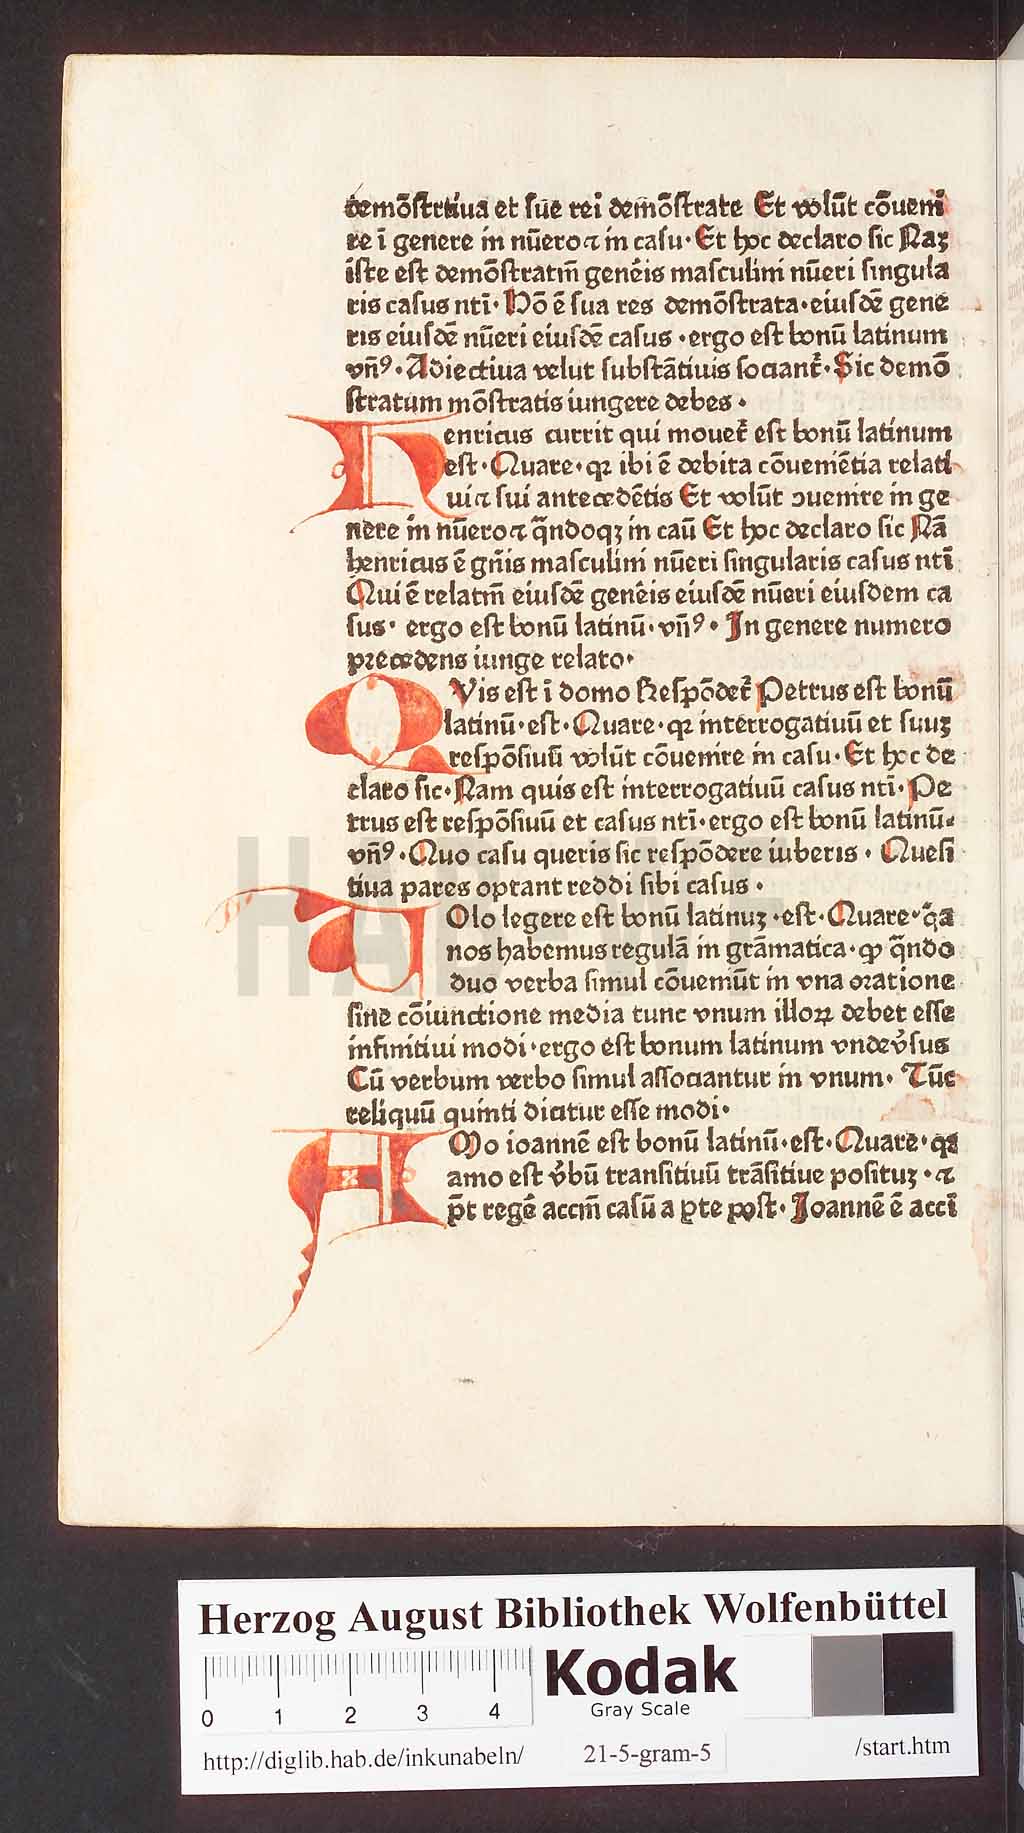 demōſtrtiua et ſue rei demōſtrate Et volūt cōueni
re ī genere in nūero ⁊ in caſu· Et hoc declaro ſic Naꝫ
iſte eſt demōſtratm̄ genēis maſculini nūeri ſingula
ris caſus ntī· Hō ē ſua res demōſtrata·eiuſdē gene
ris eiuſdē nūeri eiuſdē caſus ·ergo eſt bonū latinum
vn̄ꝰ· Adiectiua velut ſubſtātiuis ſociant᷑· Sic demō
ſtratum mōſtratis iungere debes·
Henricus currit qui mouet᷑ eſt bonū latinum
eſt· Quare·qꝛ ibi ē debita cōueniētia relati
ui ⁊ ſui antecedētis Et volūt ꝯuenire in ge
nere in nūero ⁊ q̄ndoqꝫ in caū Et hoc declaro ſic Nā
henricus ē gn̄is maſculini nūeri ſingularis caſus ntī
Qui ē relatm̄ eiuſdē genēis eiuſdē nūeri eiuſdem ca
ſus· ergo eſt bonū latinū·vn̄ꝰ· In genere numero
precedens iunge relato·
QVis eſt ī domo Reſpōdet᷑ Petrus eſt bonū
latinū·eſt·Quare·qꝛ interrogatiuū et ſuuꝫ
reſpōſiuū volūt cōuenire in caſu·Et hoc de
claro ſic·Nam quis eſt interrogatiuū caſus ntī·Pe
trus eſt reſpōſiuū et caſus ntī·ergo eſt bonū latinū·
vn̄ꝰ·Quo caſu queris ſic reſpōdere iuberis · Queſi
tiua pares optant reddi ſibi caſus·
VOlo legere eſt bonū latinuꝫ·eſt·Quare·q̄a
nos habemus regulā in grāmatica·ꝙ q̄ndo
duo verba ſimul cōueniūt in vna oratione
ſine cōiunctione media tunc vnum illoꝝ debet eſſe
infinitiui modi·ergo eſt bonum latinum vndev̄ſus
Cū verbum verbo ſimul aſſociantur in vnum· Tūc
reliquū quinti dicitur eſſe modi·
AMo ioannē eſt bonū latinū·eſt·Quare·qꝛ
amo eſt v̄bū tranſitiuū trāſitiue poſituꝫ·⁊
pōt regē accm̄ caſū a ꝑte poſt·Joannē ē accī
HAB WF
Herzog August Bibliothek Wolfenbüttel
Kodak
Gray Scale
0 1 2 3 4
http://diglib.hab.de/inkunabeln/ 21-5-gram-5 /start.htm